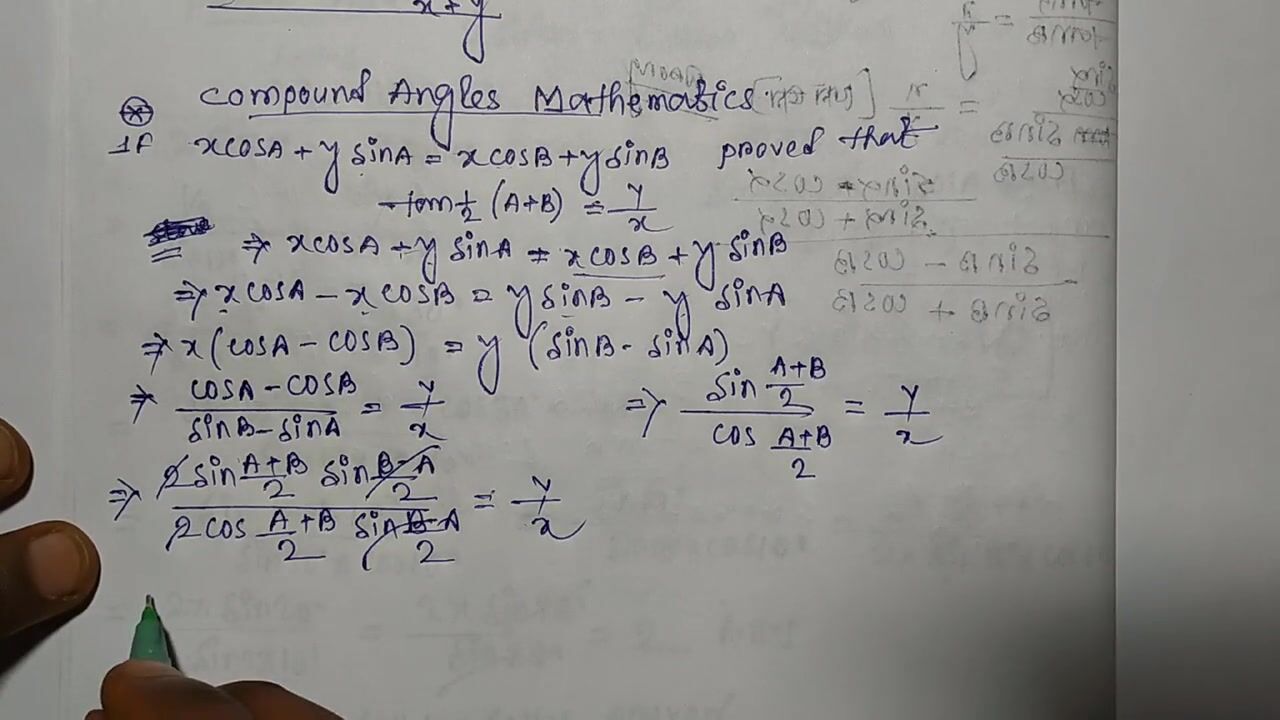 x+y
Compound Angles Mathematics
If xcosA + y sinA = xcosB + y sinB proved that
tan 1/2 (A+B) = y/x
⇒ xcosA + y sinA = xcosB + y sinB
⇒ xcosA − xcosB = y sinB − y sinA
⇒ x(cosA − cosB) = y (sinB − sinA)
⇒ (cosA − cosB)/(sinB − sinA) = y/x
⇒ (2 sin (A+B)/2 sin (B−A)/2)/(2 cos (A+B)/2 sin (B−A)/2) = y/x
⇒ (sin (A+B)/2)/(cos (A+B)/2) = y/x